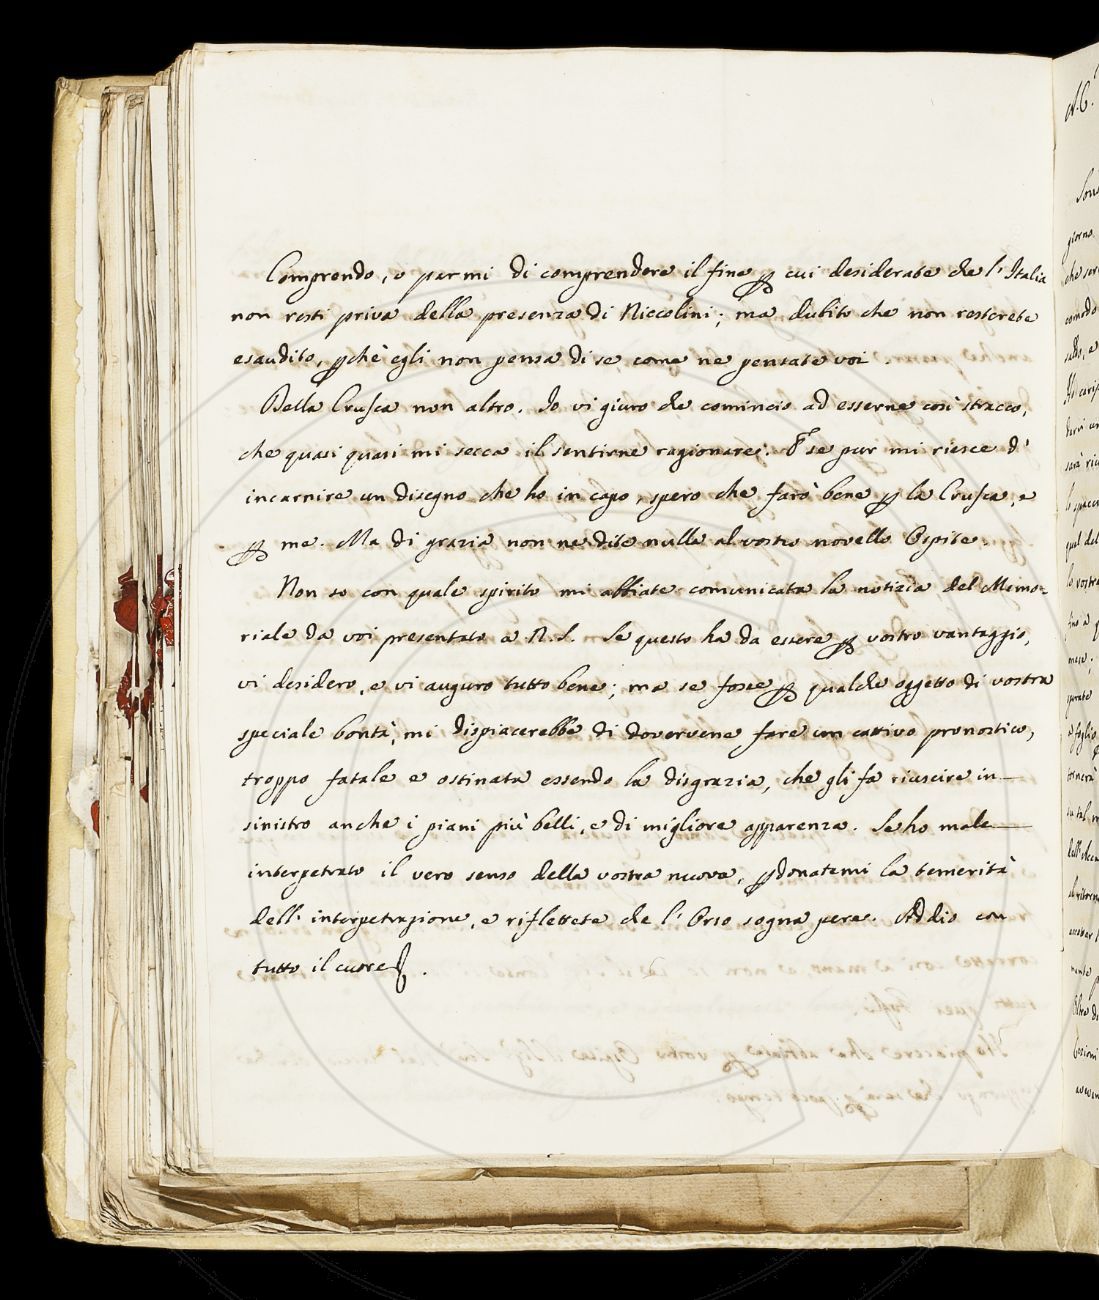 Comprendo, o parmi di comprendere il fine ꝑ cui desiderate che l'Italia
non resti priva della presenza di Niccolini; ma dubito che non resterete
esaudito, ꝑchè egli non pensa di se come ne pensate voi.
Della Crusca non altro. Io vi giuro che comincio ad esserne così stracco,
che quasi quasi mi secca il sentirne ragionare. E se pur mi riesce d'
incarnire un disegno che ho in capo, spero che farò bene ꝑ la Crusca, e
ꝑ me. Ma di grazia non ne dite nulla al vostro novello Ospite.
Non so con quale spirito mi abbiate comunicata la notizia del Memo-
riale da voi presentato a N. S. Se questo ha da essere ꝑ vostro vantaggio,
vi desidero, e vi auguro tutto bene; ma se fosse ꝑ qualche oggetto di vostra
speciale bontà, mi dispiacerebbe di dovervene fare un cattivo pronostico,
troppo fatale e ostinata essendo la disgrazia, che gli fa riuscire in
sinistro anche i piani più belli, e di migliore apparenza. Se ho male
interpetrato il vero senso della vostra nuova, ꝑdonatemi la temerità
dell'interpetrazione, e riflettete che l'Orso sogna pere. Addio con
tutto il cuore.
Sono
giorno
che
comodo